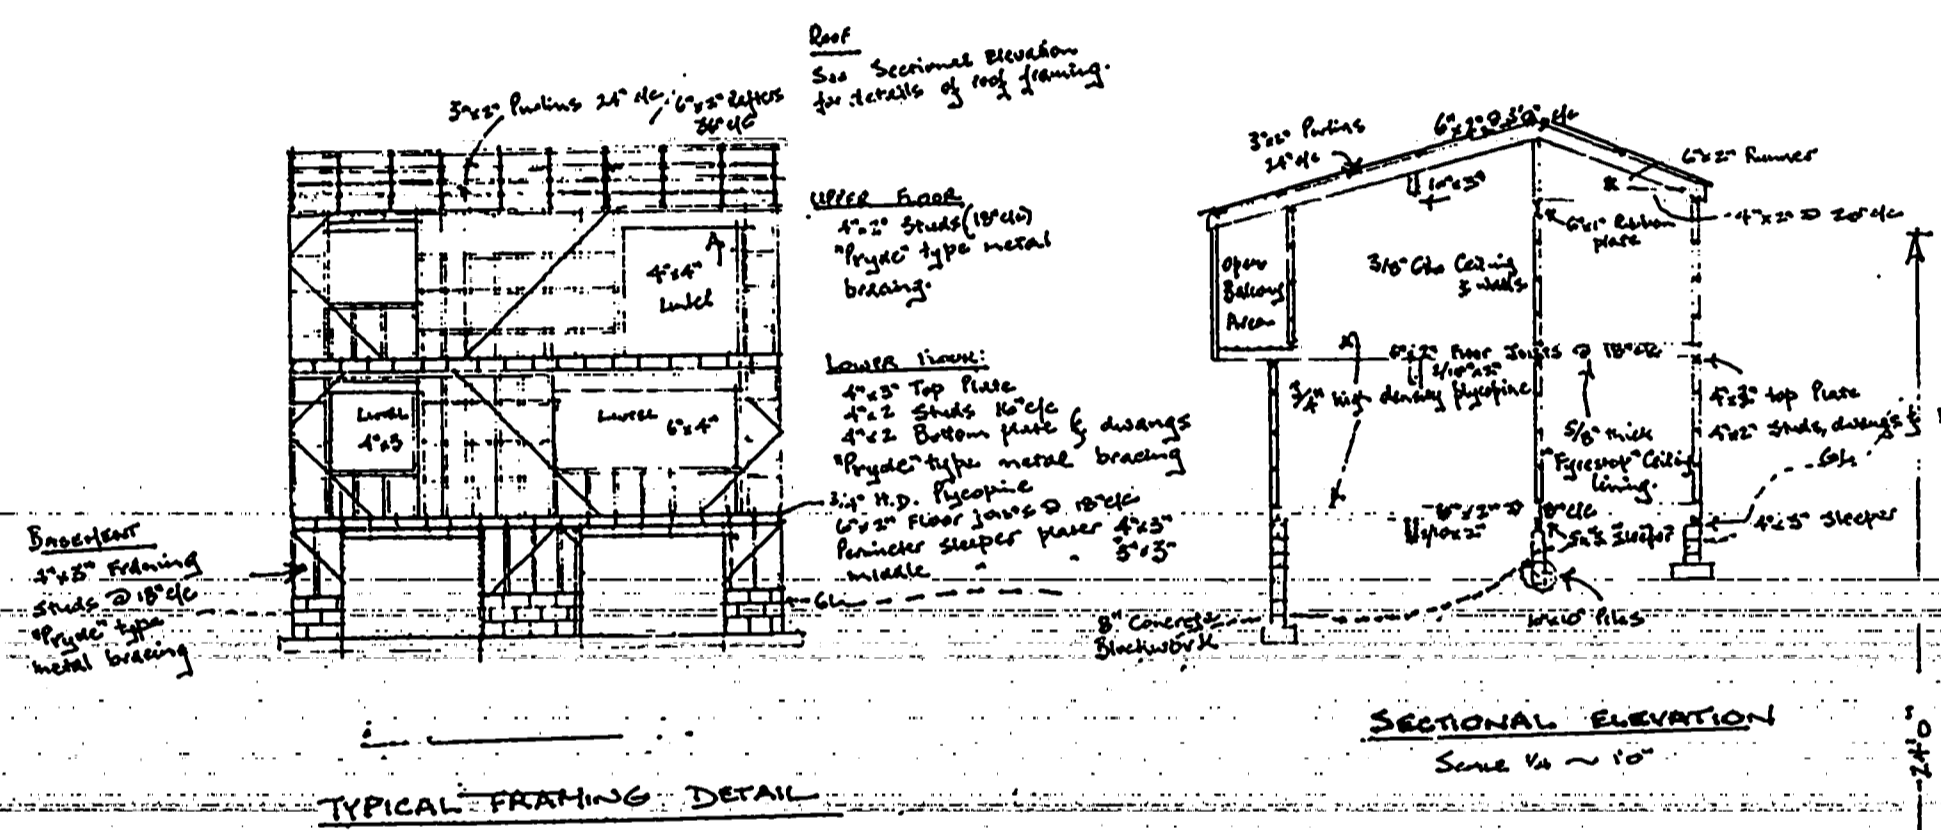 3"x2" Purlins 24" c/c
6"x2" Rafters
36" c/c
Roof
See Sectional Elevation
for details of roof framing.
UPPER FLOOR
4"x2" Studs (18" c/c)
"Pryde" type metal
bracing.
4"x4"
Lintel
LOWER FLOOR:
4"x3" Top Plate
4"x2 Studs 16" c/c
4"x2 Bottom plate & dwangs
"Pryde" type metal bracing
3/4" H.D. Plycopine
6"x2" Floor joists @ 18" c/c
Perimeter sleeper plates 4"x3"
middle " " 5"x3"
Lintel
4"x3
Lintel
6"x4"
BASEMENT
4"x3" Framing
Studs @ 18" c/c
"Pryde" type
metal bracing
GL
TYPICAL FRAMING DETAIL
3"x2" Purlins
24" c/c
6"x2" @ 3'0" c/c
6"x2" Runner
10"x3"
4"x2" @ 20" c/c
6"x1" Ribbon
plate
Open
Balcony
Area
3/8" Gib Ceiling
& walls
6"x2" Floor Joists @ 18" c/c
2/10"x2"
3/4" high density plycopine
4"x3" top Plate
4"x2" Studs, dwangs &
5/8" thick
"Fyrestop" Ceiling
lining.
GL
18" c/c
2/10x2"
Sleeper
4"x3" Sleeper
8" Concrete
Blockwork
10"x10" Piles
SECTIONAL ELEVATION
Scale 1/4 ~ 1'0"
24'0"